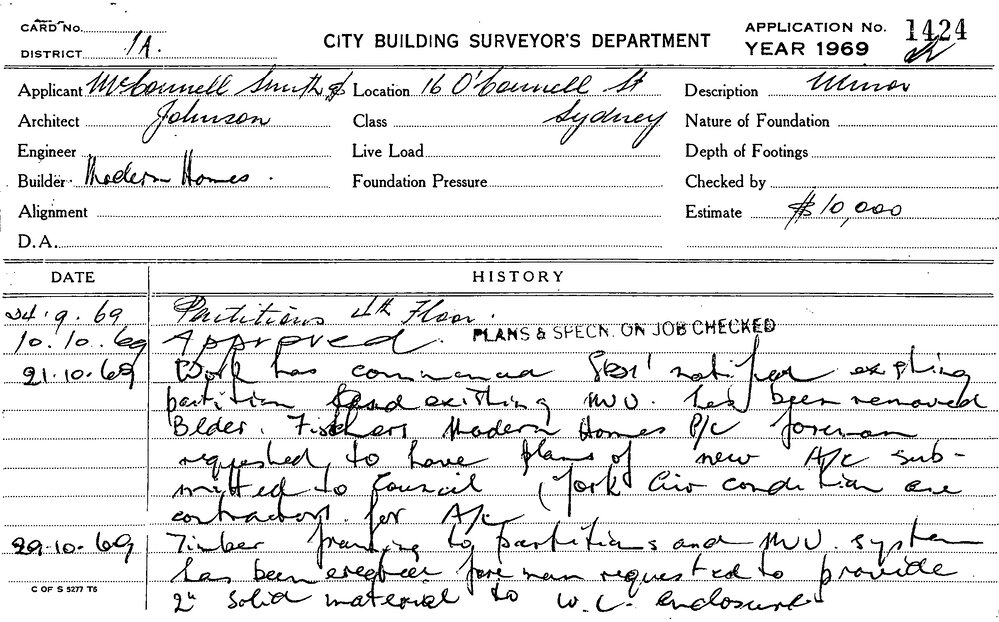 CARD No.
DISTRICT 1A.
CITY BUILDING SURVEYOR'S DEPARTMENT
APPLICATION No. 1424
YEAR 1969
Applicant McConnell Smith & Location 16 O'Connell St Description Minor
Architect Johnson Class Sydney Nature of Foundation
Engineer Live Load Depth of Footings
Builder Modern Homes. Foundation Pressure Checked by
Alignment Estimate $10,000
D.A.
DATE HISTORY
24.9.69 Partitions 4th Floor.
10.10.69 Approved. PLANS & SPECN. ON JOB CHECKED
21.10.69 Work has commenced notified existing
partition and existing M.V. has been removed
Blder. Fischers Modern Homes P/L foreman
requested to have plans of new A/c sub-
mitted to Council (York Air condition are
contractors for A/c
29.10.69 Timber framing to partitions and M.V. system
has been erected foreman requested to provide
2" solid material to W.C. enclosure
C OF S 5277 T6